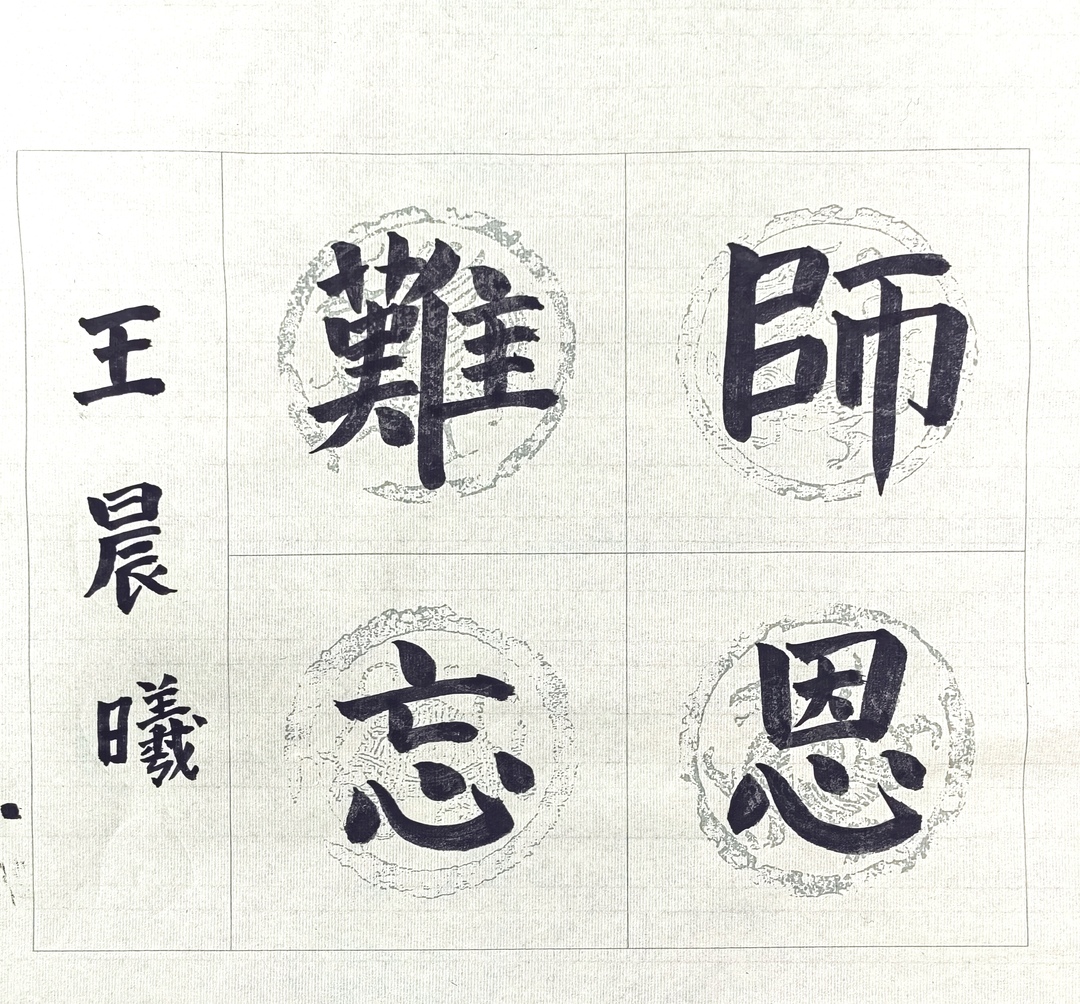 師恩
難忘
王晨曦